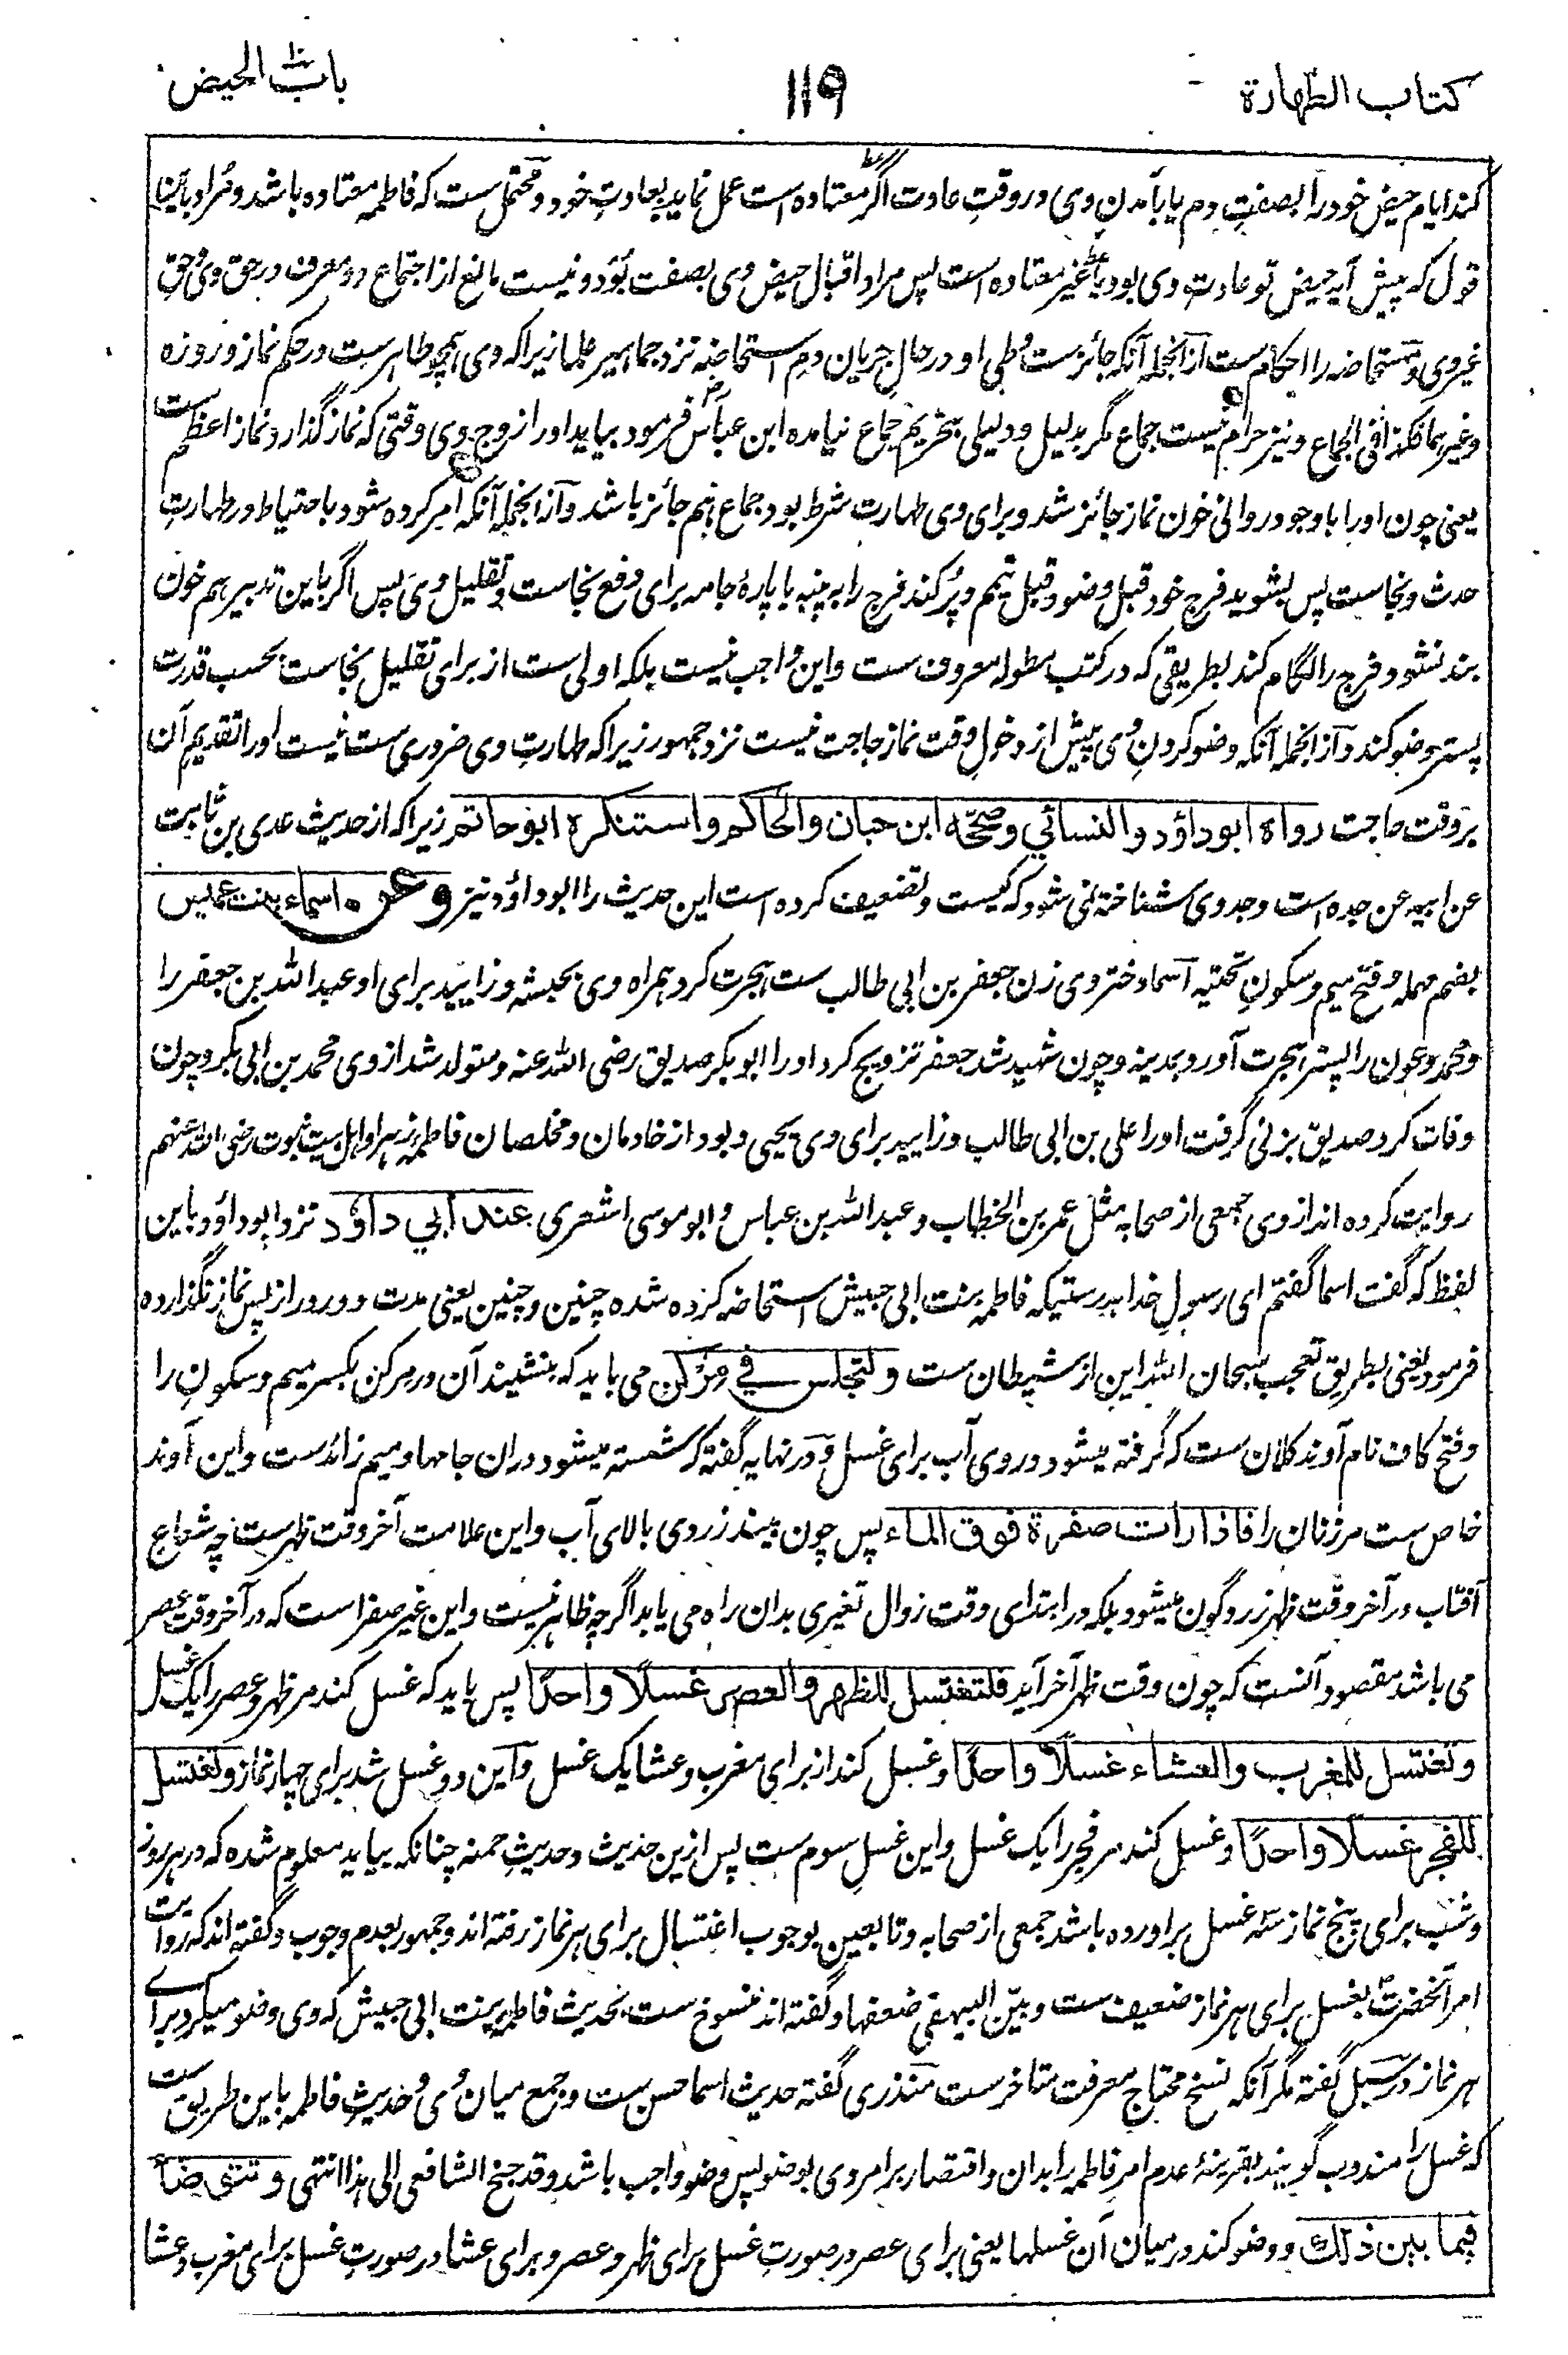 کتاب الطهارة
۱۱۹
باب الحیض
کند ایام حیض خود را بصفتِ دم یا بآمدنِ وی در وقتِ عادت اگر معتاده است عمل نماید بعادتِ خود و محتمل ست که فاطمه معتاده باشد و مراد باین
قول که پیش آید حیض تو عادتِ وی بود یا غیر معتاده است پس مراد اقبال حیض وی بصفت بود و نیست مانع از اجتماع دو معرف در حق وی و حق
غیر وی و مستحاضه را احکام ست ازانجمله آنکه جائزست وطی او در حالِ جریان دم استحاضه نزد جماهیر علما زیرا که وی همچو طاهرست در حکم نماز و روزه
و غیرهما فکذا فی الجماع و نیز حرام نیست جماع مگر بدلیل و دلیلی بتحریم جماع نیامده ابن عباس فرمود بیاید او را زوج وی وقتی که نماز گذارد نماز اعظم ست
یعنی چون او را با وجود روانی خون نماز جائز شد و برای وی طهارت شرط بود جماع هم جائز باشد و ازانجمله آنکه امر کرده شود باحتیاط در طهارتِ
حدث و نجاست پس بشوید فرج خود قبل وضو و قبل تیمم و پُر کند فرج را به پنبه یا پارهٔ جامه برای دفع نجاست و تقلیل وی پس اگر باین تدبیر هم خون
بند نشود فرج را لگام کند بطریقی که در کتب مطوله معروف ست و این واجب نیست بلکه اولی ست از برای تقلیل نجاست بحسب قدرت
پستر وضو کند و ازانجمله آنکه وضو کردنِ وی پیش از دخولِ وقت نماز حاجت نیست نزد جمهور زیرا که طهارتِ وی ضروری ست نیست او را تقدیم آن
بر وقت حاجت رواه ابوداؤد والنسائي وصححه ابن حبان والحاكم واستنكره ابو حاتم زیرا که از حدیث عدی بن ثابت
عن ابیه عن جده است و جد وی شناخته نمی شود که کیست و تضعیف کرده است این حدیث را ابوداؤد نیز وعن اسماء بنت عمیس
بضم مهمله و فتح میم و سکونِ تحتیه اسما دختر وی زن جعفر بن ابی طالب ست هجرت کرد همراه وی بحبشه و زایید برای او عبدالله بن جعفر را
و محمد و عون را پستر هجرت آورد بمدینه و چون شهید شد جعفر تزویج کرد او را ابوبکر صدیق رضی الله عنه و متولد شد از وی محمد بن ابی بکر و چون
وفات کرد صدیق بزنی گرفت او را علی بن ابی طالب و زایید برای وی یحیی و بود از خادمان و مخلصان فاطمه زهرا و اهل بیت نبوت رضی الله عنهم
روایت کرده اند از وی جمعی از صحابه مثل عمر بن الخطاب و عبدالله بن عباس و ابو موسی اشعری عند أبي داؤد نزد ابوداؤد باین
لفظ که گفت اسما گفتم ای رسولِ خدا بدرستیکه فاطمه بنت ابی حبیش استحاضه کرده شده چنین و چنین یعنی مدت دور و دراز پس نماز نگذارده
فرمود یعنی بطریق تعجب سبحان الله این از شیطان ست ولتجلس في مركن می باید که بنشیند آن در مرکن بکسر میم و سکونِ را
و فتح کاف نام آوند کلان ست که گرفته میشود در وی آب برای غسل و در نهایه گفته که شسته میشود دران جامها و میم زائدست و این آوند
خاص ست مر زنان را فاذا رات صفرة فوق الماء پس چون بیند زردی بالای آب و این علامت آخر وقت ظهرست چه شعاع
آفتاب در آخر وقت ظهر زردگون میشود بلکه در ابتدای وقت زوال تغیری بدان راه می یابد اگرچه ظاهر نیست و این غیر صفراست که در آخر وقت عصر
می باشد مقصود آنست که چون وقت ظهر آخر آید فلتغتسل للظهر والعصر غسلًا واحدًا پس باید که غسل کند مر ظهر و عصر را یک غسل
وتغتسل للمغرب والعشاء غسلًا واحدًا و غسل کند از برای مغرب و عشا یک غسل و این دو غسل شد برای چهار نماز وتغتسل
للفجر غسلًا واحدًا و غسل کند مر فجر را یک غسل و این غسلِ سوم ست پس ازین حدیث و حدیثِ حمنه چنانکه بیاید معلوم شده که در هر روز
و شب برای پنج نماز سه غسل برآورده باشد جمعی از صحابه و تابعین بوجوب اغتسال برای هر نماز رفته اند و جمهور بعدم وجوب و گفته اند که روایت
امر آنحضرت بغسل برای هر نماز ضعیف ست و بیّن البیهقی ضعفها و گفته اند منسوخ ست بحدیث فاطمه بنت ابی حبیش که وی وضو میکرد برای
هر نماز در سبل گفته مگر آنکه نسخ محتاج معرفت متاخرست منذری گفته حدیث اسما حسن ست و جمع میان وی و حدیثِ فاطمه باین طریق ست
که غسل را مندوب گویند بقرینهٔ عدم امر فاطمه را بدان و اقتصار بر امر وی بوضو پس وضو واجب باشد و قد جنح الشافعی الی هذا انتهی وتتوضأ
فيما بين ذلك و وضو کند در میان آن غسلها یعنی برای عصر در صورتِ غسل برای ظهر و عصر و برای عشا در صورتِ غسل برای مغرب و عشا